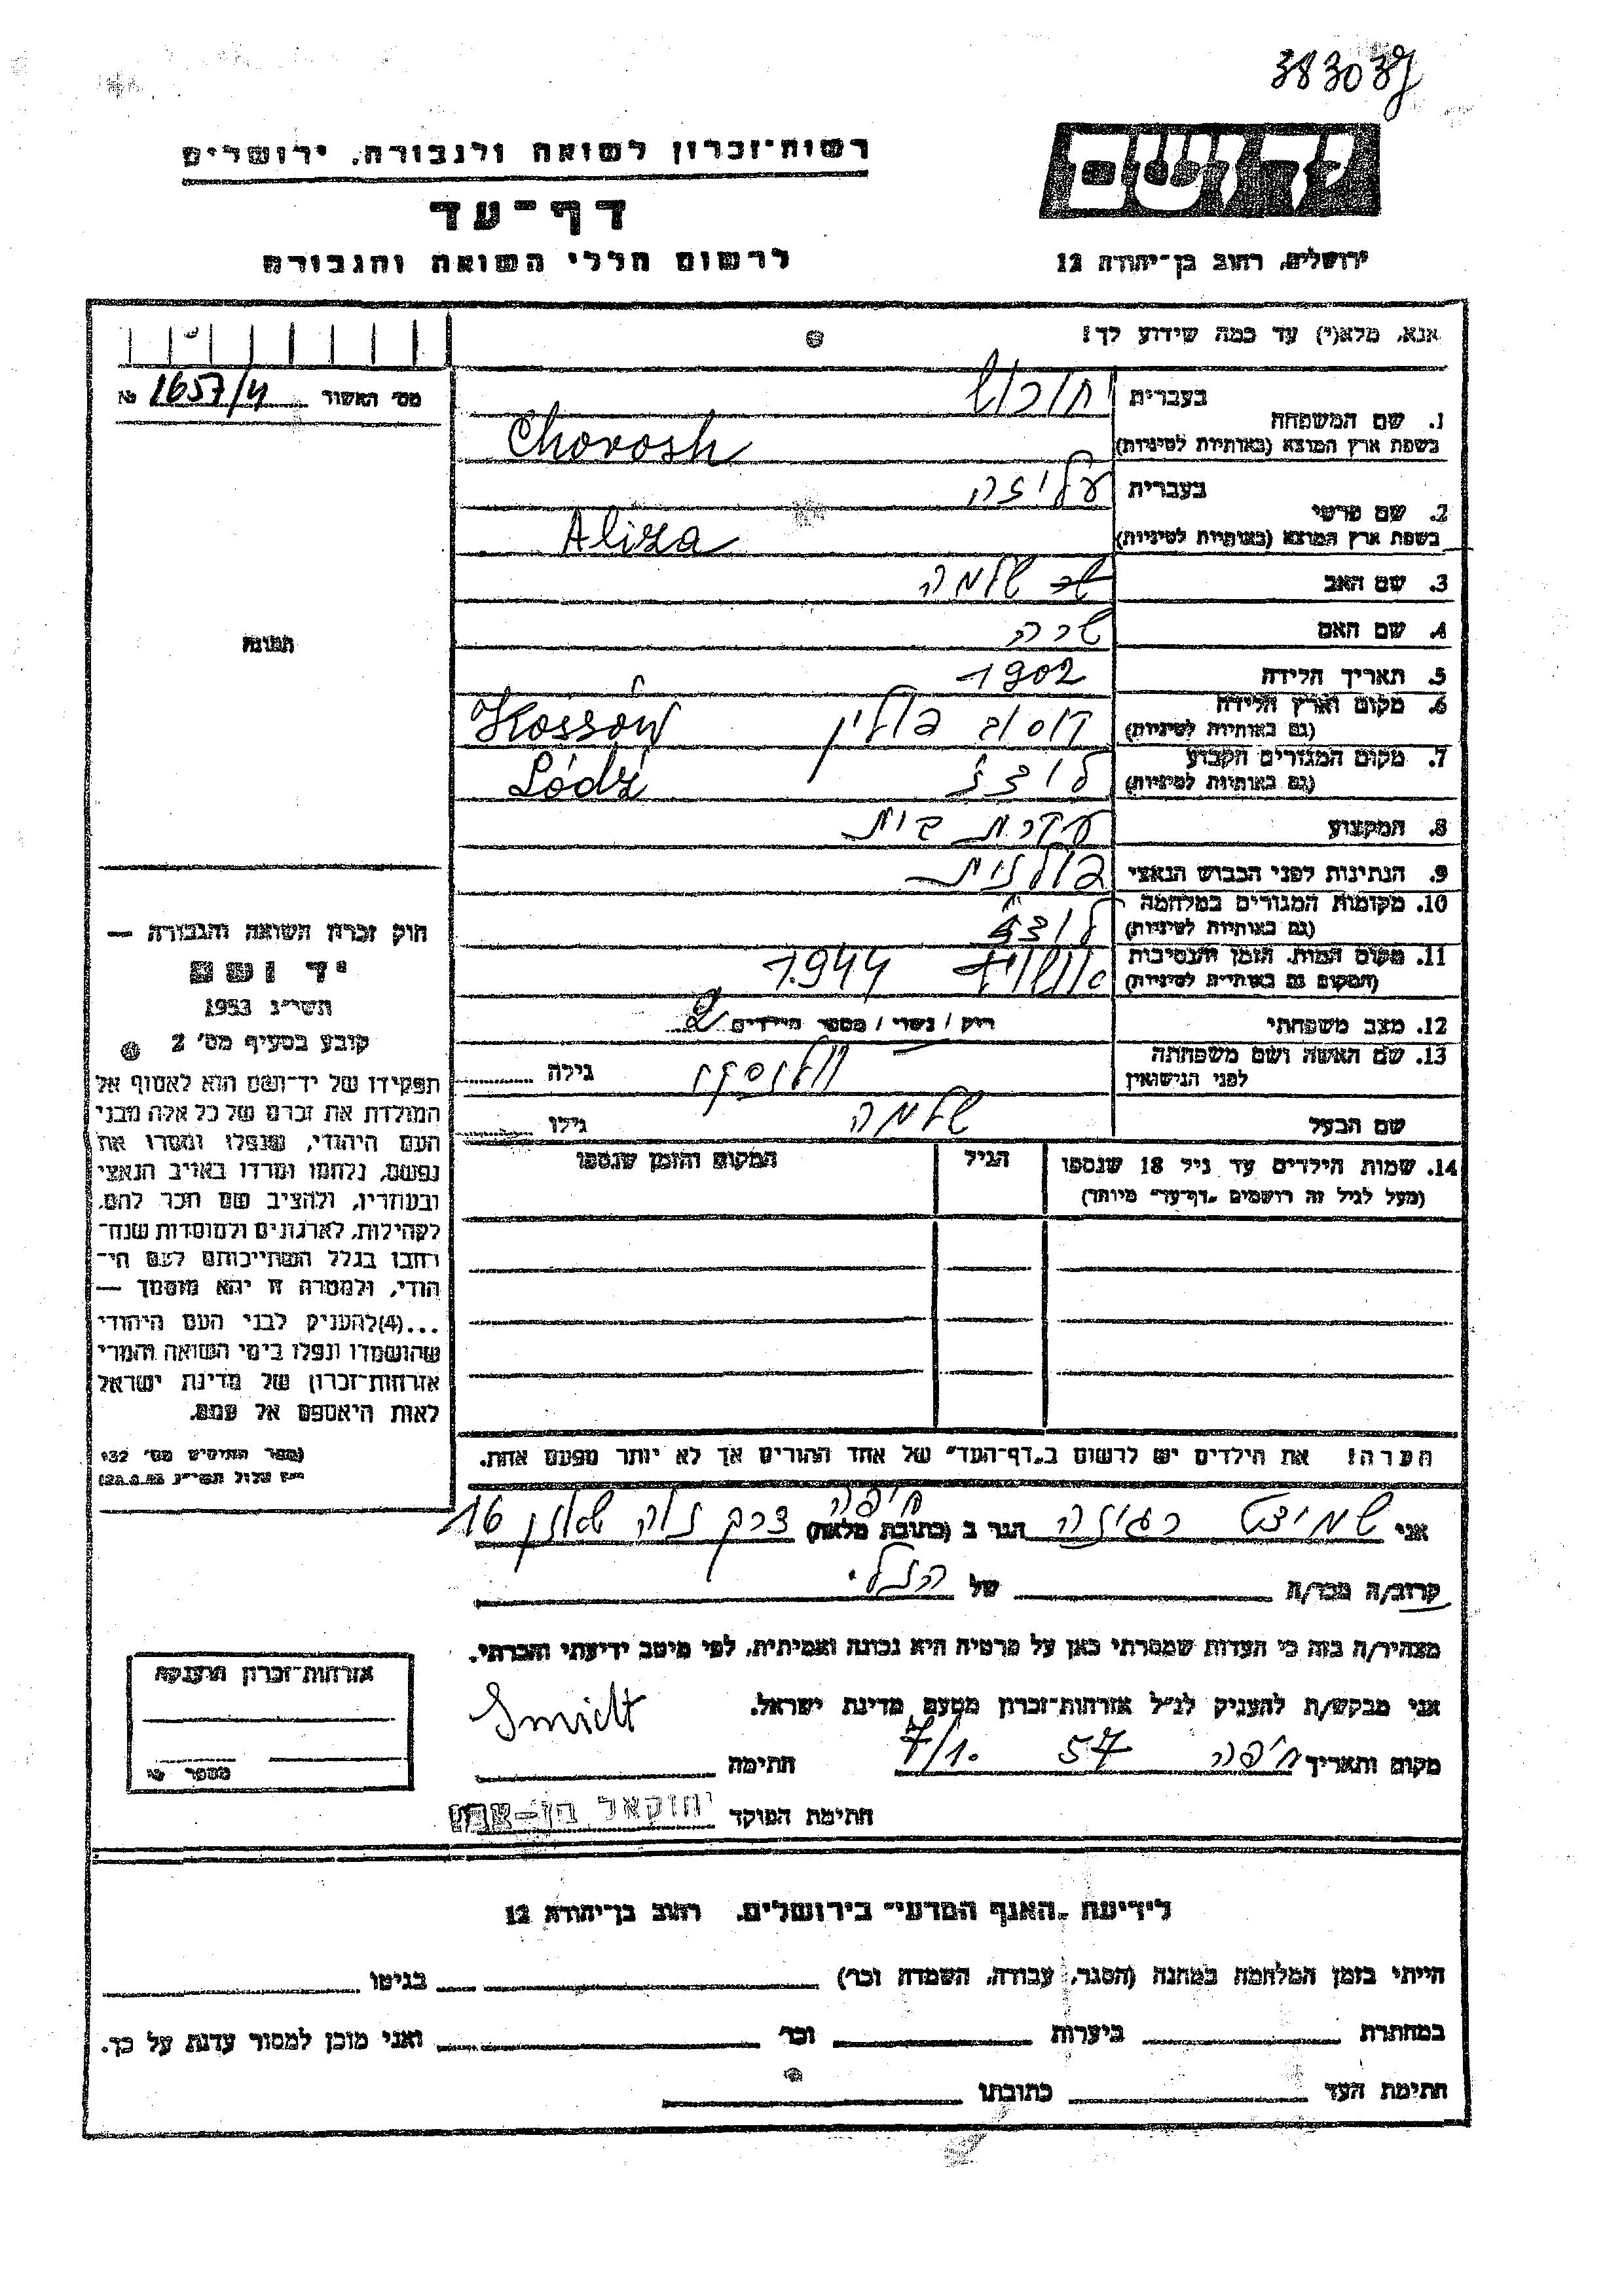 383037
רשות־זכרון לשואה ולגבורה, ירושלים
יד ושם
דף־עד
לרשום חללי השואה והגבורה
ירושלים, רחוב בן־יהודה 12
אנא, מלא(י) עד כמה שידוע לך!
מס׳ האשור № 1657/4
1. שם המשפחה
בעברית חורוש
בשפת ארץ המוצא (באותיות לטיניות) Chorosh
2. שם פרטי
בעברית עליזה
בשפת ארץ המוצא (באותיות לטיניות) Aliza
3. שם האב שלמה
4. שם האם שרה
תמונה
5. תאריך הלידה 1902
6. מקום וארץ הלידה (גם באותיות לטיניות) קוסוב פולין Kossów
7. מקום המגורים הקבוע (גם באותיות לטיניות) לודז Łódź
8. המקצוע עקרת בית
9. הנתינות לפני הכבוש הנאצי פולנית
10. מקומות המגורים במלחמה (גם באותיות לטיניות) לודז
11. מקום המות, הזמן והנסיבות (המקום גם באותיות לטיניות) 1944
12. מצב משפחתי רוק / נשוי / מספר הילדים 2
13. שם האשה ושם משפחתה לפני הנישואין גילה
שם הבעל שלמה גילו
14. שמות הילדים עד גיל 18 שנספו הגיל המקום והזמן שנספו
(מעל לגיל זה רושמים „דף־עד״ מיוחד)
חוק זכרון השואה והגבורה —
יד ושם
תשי״ג 1953
קובע בסעיף מס׳ 2
תפקידו של יד־ושם הוא לאסוף אל
המולדת את זכרם של כל אלה מבני
העם היהודי, שנפלו ומסרו את
נפשם, נלחמו ומרדו באויב הנאצי
ובעוזריו, ולהציב שם וזכר להם,
לקהילות, לארגונים ולמוסדות שנח־
רבו בגלל השתייכותם לעם הי־
הודי, ולמטרה זו יהא מוסמך —
...(4) להעניק לבני העם היהודי
שהושמדו ונפלו בימי השואה והמרי
אזרחות־זכרון של מדינת ישראל
לאות היאספם אל עמם.
(ספר החוקים מס׳ 132
י״ז אלול תשי״ג 28.8.53)
הערה! את הילדים יש לרשום ב„דף־העד״ של אחד ההורים אך לא יותר מפעם אחת.
אני שמידט רגינה הגר ב (כתובת מלאה) חיפה דרך נוה שאנן 16
קרוב/ה מכר/ה של הנ״ל.
מצהיר/ה בזה כי העדות שמסרתי כאן על פרטיה היא נכונה ואמיתית, לפי מיטב ידיעתי והכרתי.
אני מבקש/ת להעניק לנ״ל אזרחות־זכרון מטעם מדינת ישראל.
מקום ותאריך חיפה 57 7/10. חתימה Smidt
חתימת הפוקד יחזקאל בן־
אזרחות־זכרון הוענקה
מספר
לידיעת „האגף המדעי״ בירושלים, רחוב בן־יהודה 12
הייתי בזמן המלחמה במחנה (הסגר, עבודה, השמדה וכו׳) בגיטו
במחתרת ביערות וכו׳ ואני מוכן למסור עדות על כך.
חתימת העד כתובתו